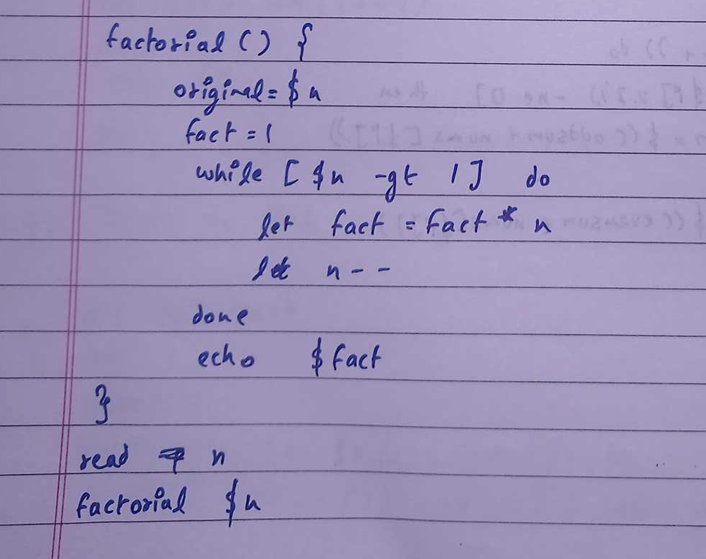 factorial () {
original=$n
fact=1
while [ $n -gt 1] do
let fact = fact * n
let n--
done
echo $fact
}
read n
factorial $n